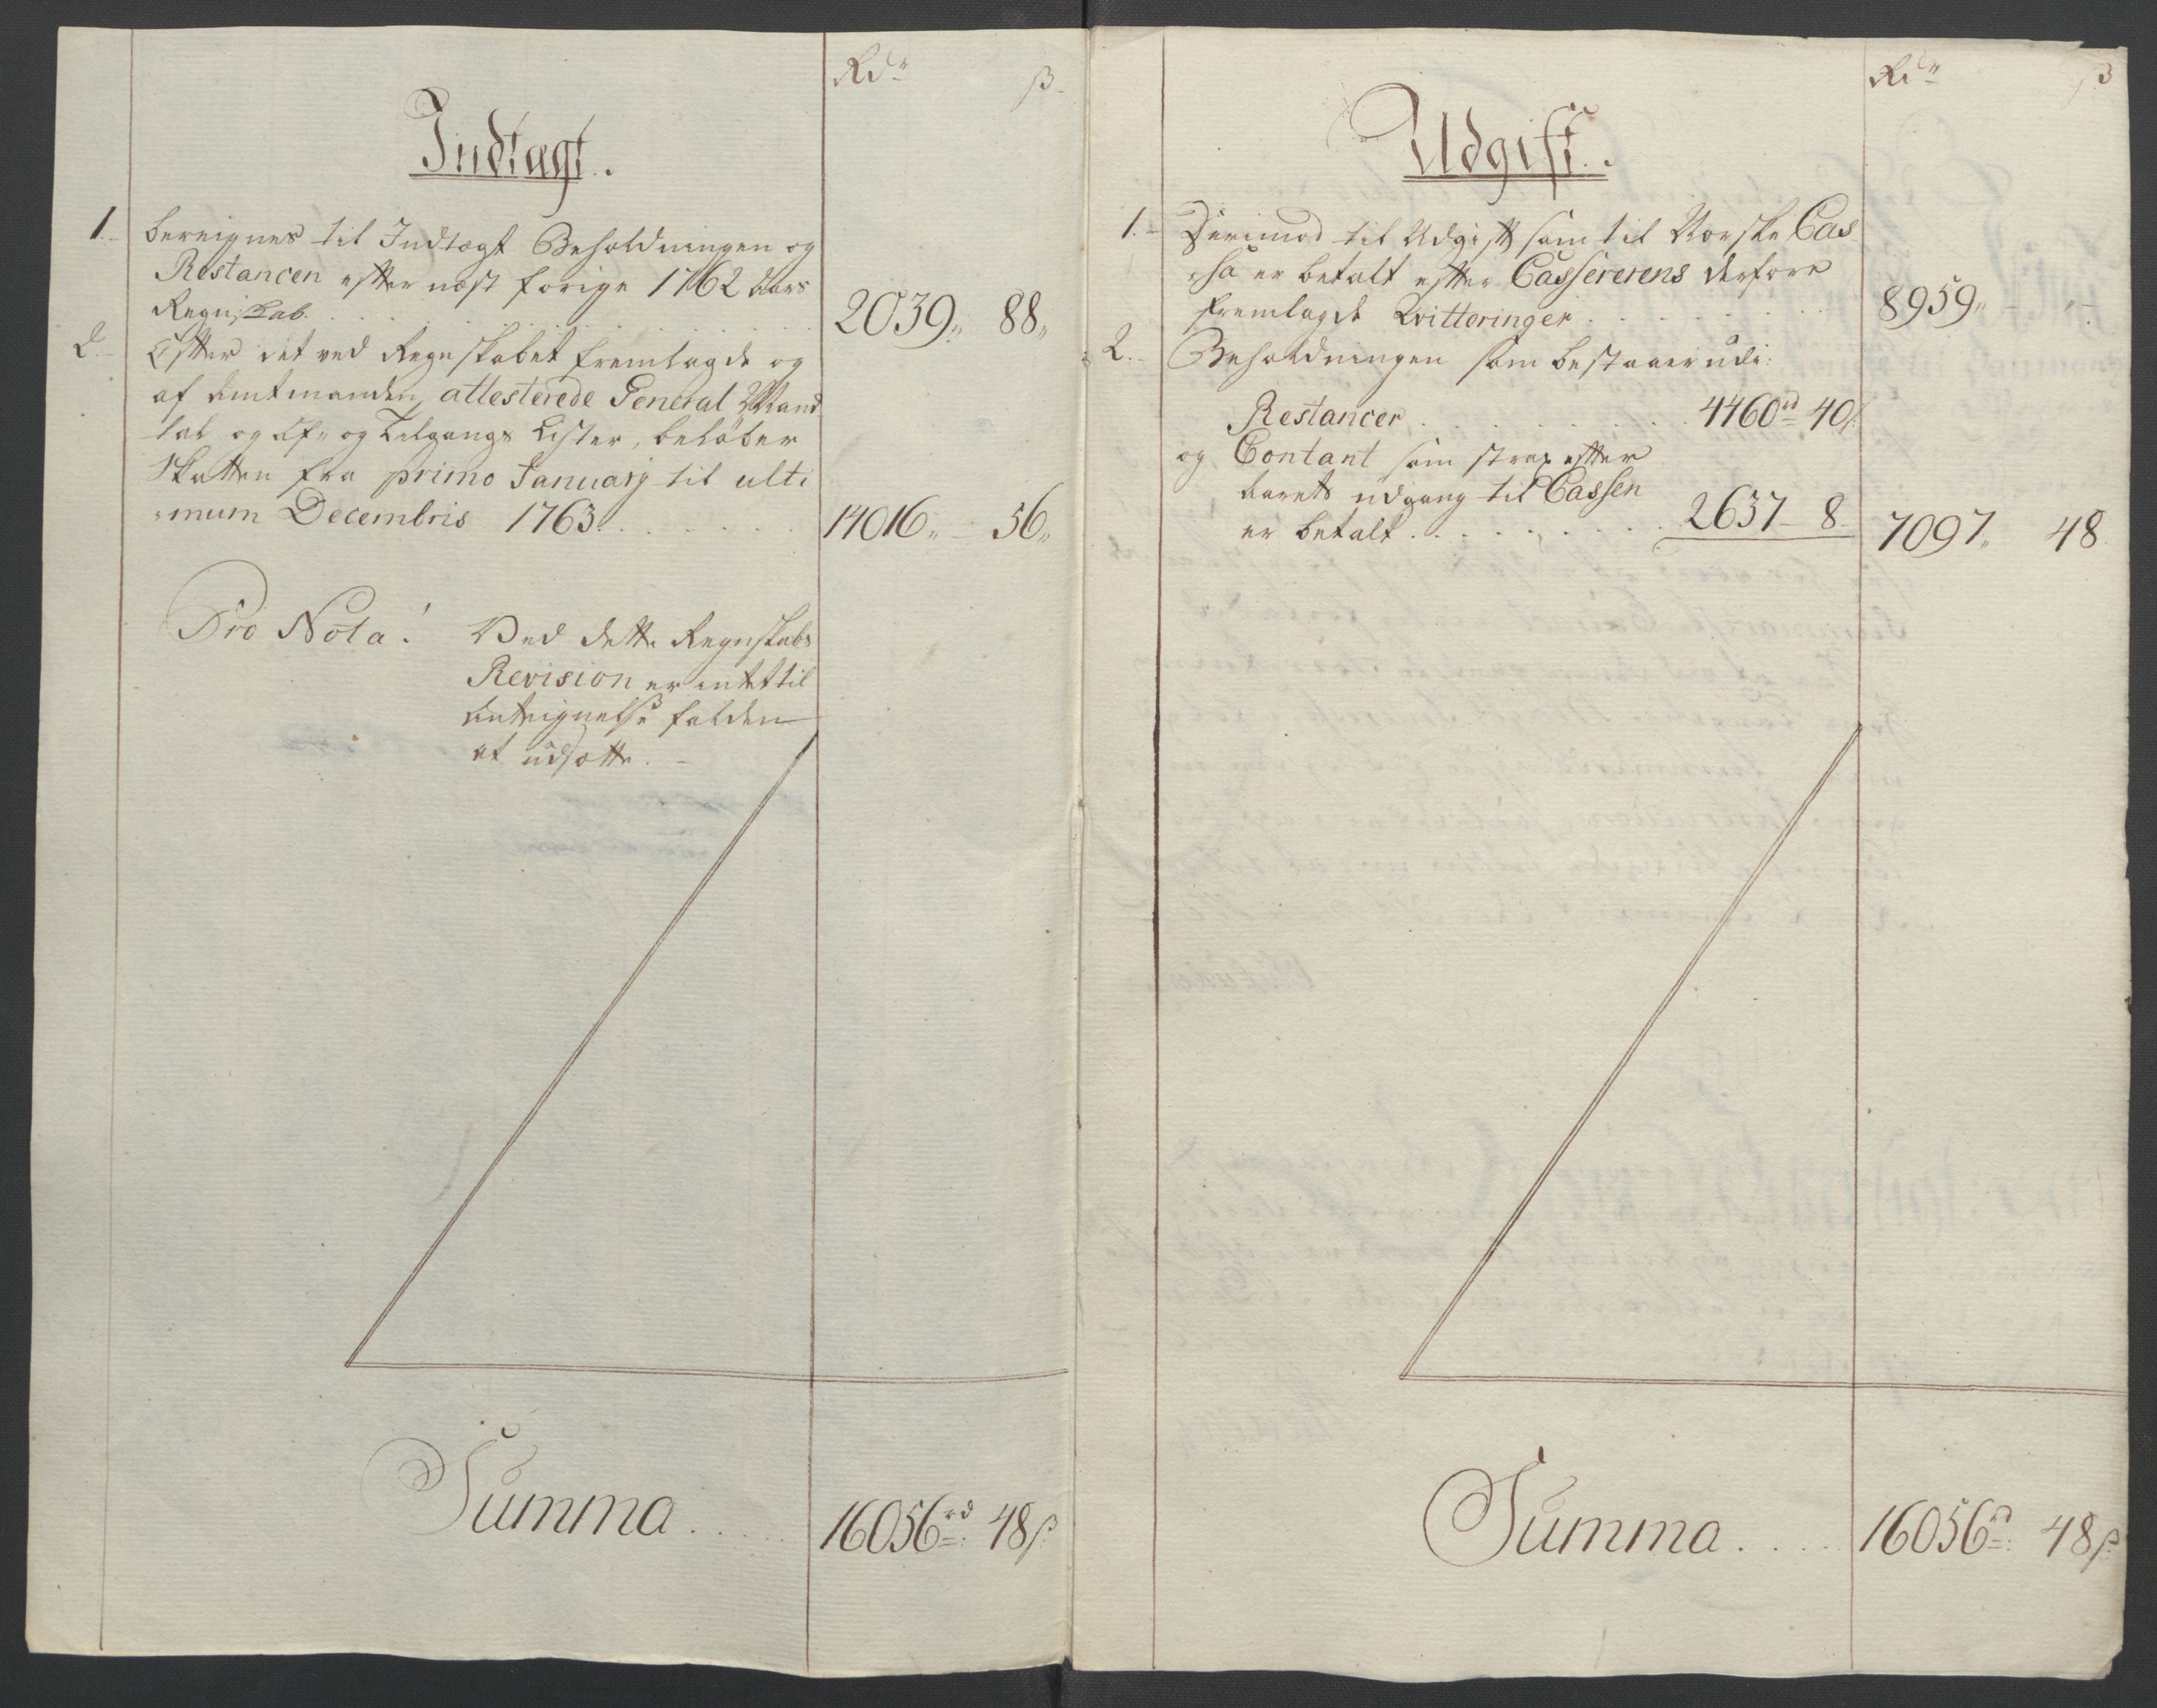 Rdr ß
Indtægt.
1. beregnes til Indtægt Beholdningen og
Restancen efter næst forige 1762 Aars
Regnskab. 2039,, 88,,
2. Efter det ved Regnskabet fremlagde og
af Amtmanden attesterede General Mand
tal og Af- og Tilgangs Lister, beløber
Skatten fra primo Januarij til ulti
mum Decembris 1763. 14016,, 56,,
Pro Nota! Ved dette Regnskabs
Revision er intet til
Antegnelse falden
at udsætte.
Summa 16056rd 48ß
Rdr ß
Udgift.
1. Derimod til Udgift som til Norske Cas-
sa er betalt efter Cassererens derfore
fremlagde Qvitteringer 8959,, - ,, -
2. Beholdningen som bestaaer udi:
Restancer 4460rd 40ß
og Contant som strax efter
Aarets udgang til Cassen
er betalt 2637 - 8 - 7097,, 48
Summa 16056rd 48ß